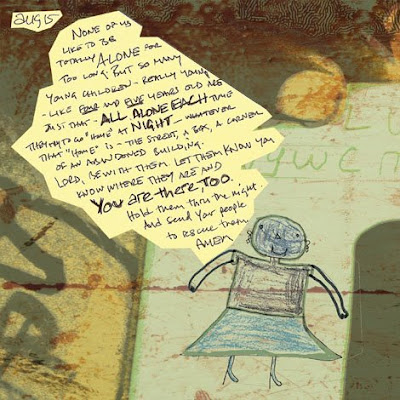 aug 15
NONE OF US
LIKE TO BE
TOTALLY ALONE FOR
TOO LONG. BUT SO MANY
YOUNG CHILDREN - REALLY YOUNG
- LIKE FOUR AND FIVE YEARS OLD ARE
JUST THAT - ALL ALONE EACH TIME
THEY TRY TO GO "HOME" AT NIGHT - WHATEVER
THAT "HOME" IS - THE STREET, A BOX, A CORNER
OF AN ABANDONED BUILDING.
LORD, BE WITH THEM. LET THEM KNOW YOU
KNOW WHERE THEY ARE AND
You are there, too.
Hold them thru the night.
And send Your people
to rescue them
AMEN